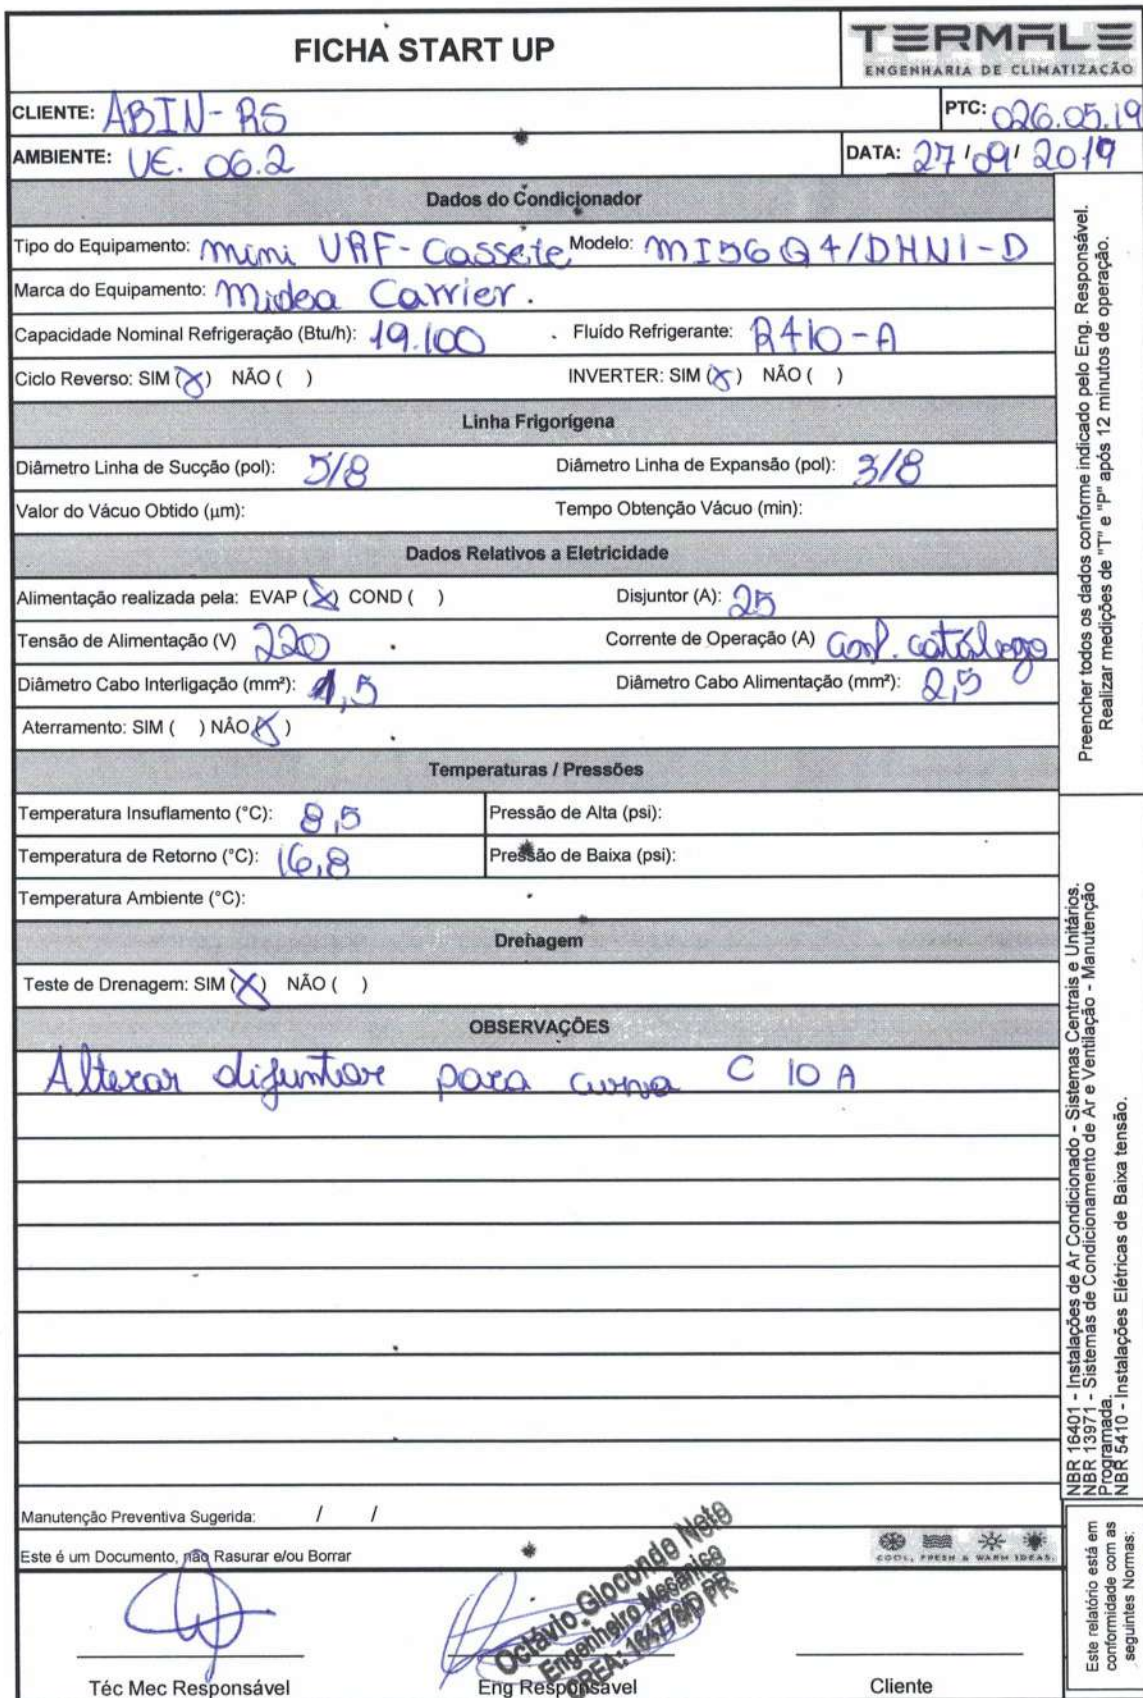 FICHA START UP
TERMALE
ENGENHARIA DE CLIMATIZAÇÃO
CLIENTE: ABIN-RS PTC: 026.05.19
AMBIENTE: UE. 06.2 DATA: 27/09/2019
Dados do Condicionador
Tipo do Equipamento: Mini VRF-Cassete Modelo: MI56Q4/DHN1-D
Marca do Equipamento: Midea Carrier.
Capacidade Nominal Refrigeração (Btu/h): 19.100 Fluído Refrigerante: R410-A
Ciclo Reverso: SIM (X) NÃO ( ) INVERTER: SIM (X) NÃO ( )
Linha Frigorígena
Diâmetro Linha de Sucção (pol): 5/8 Diâmetro Linha de Expansão (pol): 3/8
Valor do Vácuo Obtido (μm): Tempo Obtenção Vácuo (min):
Dados Relativos a Eletricidade
Alimentação realizada pela: EVAP (X) COND ( ) Disjuntor (A): 25
Tensão de Alimentação (V) 220 Corrente de Operação (A) Conf. catálogo
Diâmetro Cabo Interligação (mm²): 1,5 Diâmetro Cabo Alimentação (mm²): 2,5
Aterramento: SIM ( ) NÃO (X)
Temperaturas / Pressões
Temperatura Insuflamento (°C): 8,5 Pressão de Alta (psi):
Temperatura de Retorno (°C): 16,8 Pressão de Baixa (psi):
Temperatura Ambiente (°C):
Drenagem
Teste de Drenagem: SIM (X) NÃO ( )
OBSERVAÇÕES
Alterar disjuntor para curva C 10 A
Manutenção Preventiva Sugerida: / /
Este é um Documento, não Rasurar e/ou Borrar
COOL, FRESH & WARM IDEAS.
Octávio Glocondo Neto
Engenheiro Mecânico
CREA: 164778/D PR
Téc Mec Responsável Eng Responsável Cliente
Preencher todos os dados conforme indicado pelo Eng. Responsável.
Realizar medições de "T" e "P" após 12 minutos de operação.
NBR 16401 - Instalações de Ar Condicionado - Sistemas Centrais e Unitários.
NBR 13971 - Sistemas de Condicionamento de Ar e Ventilação - Manutenção
Programada.
NBR 5410 - Instalações Elétricas de Baixa tensão.
Este relatório está em
conformidade com as
seguintes Normas: